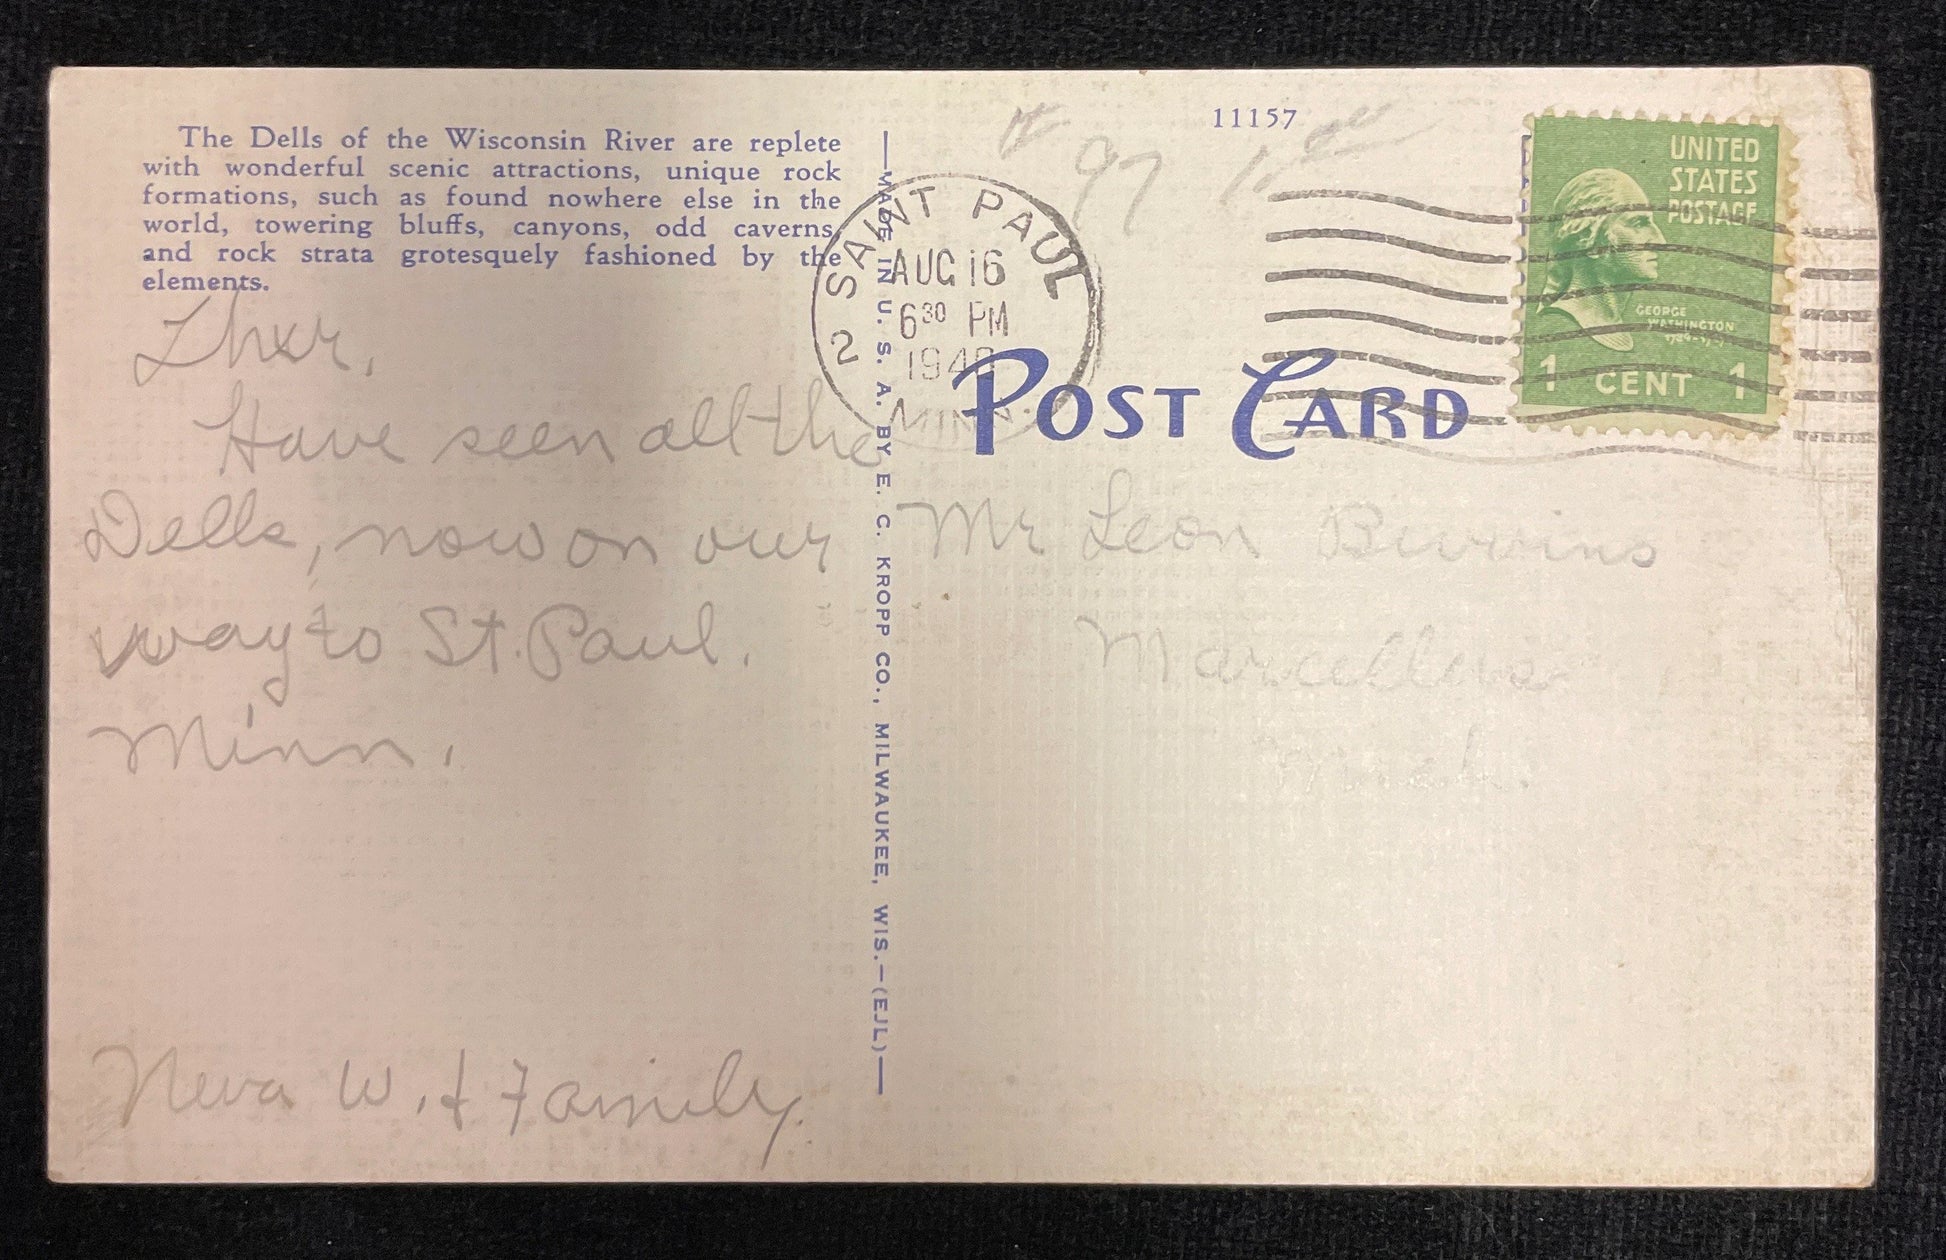 The Dells of the Wisconsin River are replete
with wonderful scenic attractions, unique rock
formations, such as found nowhere else in the
world, towering bluffs, canyons, odd caverns
and rock strata grotesquely fashioned by the
elements.
Have seen all the
Dells, now on our
way to St. Paul.
Minn.
Neva W. & Family.
—MADE IN U. S. A. BY E. C. KROPP CO., MILWAUKEE, WIS.—(EJL)—
11157
97
SAINT PAUL 2
AUG 16
6 30 PM
MINN.
POST CARD
UNITED
STATES
POSTAGE
GEORGE
WASHINGTON
1 CENT 1
Mr Leon
Marcellus
Mich.